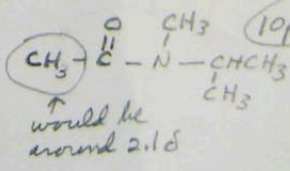 O CH3 (10p
CH3 - C - N - CHCH3
CH3
would be
around 2.1 δ